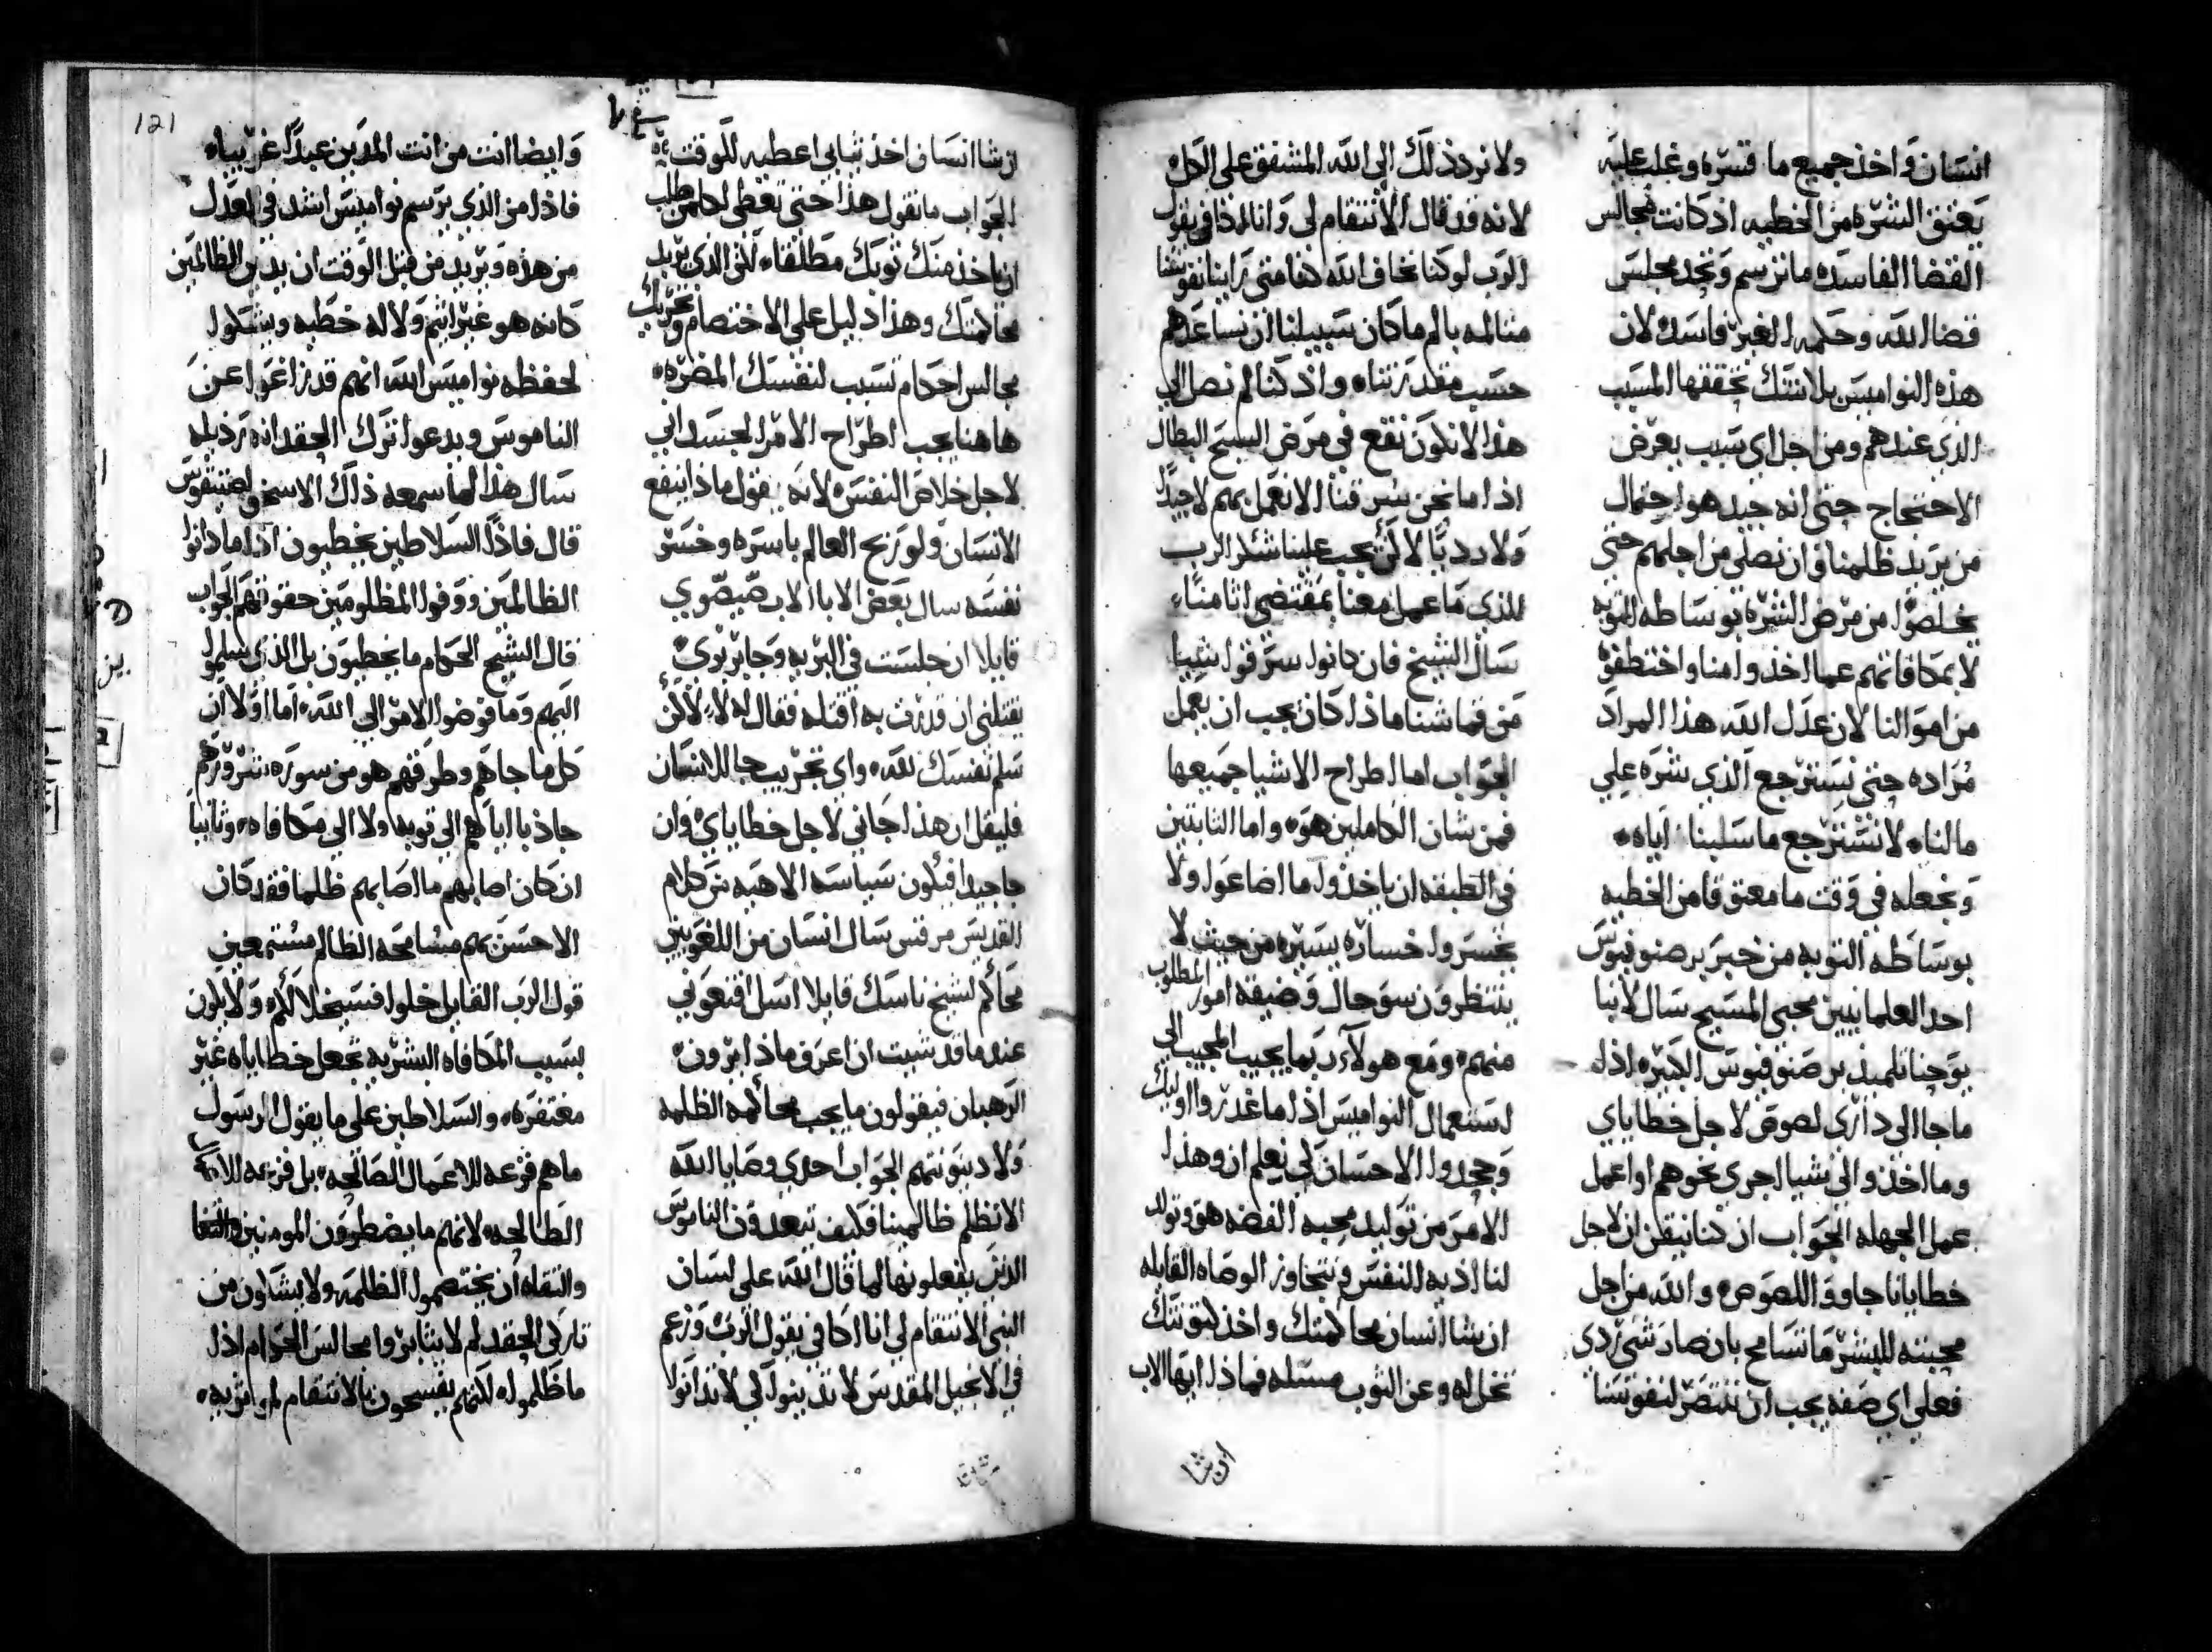 انسان واخذ جميع ما قسره وغلب عليه
يعتق الشره من الخطيه اذ كانت مجالس
القضا الفاسده ما ترسم وتجد مجلس
قضا الله وحكمه الغير فاسده لان
هذه النواميس بلا شك تحققها المسبب
الذي عندهم ومن اجل اي سبب يعرض
الاحتجاج حتى انه جيد هو احتمال
من يريد ظلمنا وان نصلى من اجلهم حتى
يخلصوا من مرض الشره بوساطه التوبه
لا بمكافاتهم عما اخذوا منا واختطفوه
من اموالنا لان عدل الله هذا المراد
مراده حتى نسترجع الذي شره على
مالنا لا نسترجع ما سلبنا اياه
ونجعله في وقت ما معتوقا من الخطيه
بوساطه التوبه من خبر برصنوفيوس
احد العلمانيين محبي المسيح سال لانبا
يوحنا تلميذ برصنوفيوس الكبير اذا
ما جا الى داري لصوص لاجل خطاياي
وما اخذوا لي شيا اجري نحوهم او اعمل
عمل الجهله الجواب ان كنا نيقن ان لاجل
خطايانا جاووا اللصوص والله من اجل
محبته للبشر ما تسامح بان صار شي ردي
فعلى اي صفه يجب ان ننتصر لنفوسنا
ولا نرد ذلك الى الله المشفق على الكل
لانه قد قال الانتقام لي وانا اكافي يقول
الرب لو كنا نخاف الله كنا متى راينا نفوسنا
متالمه بالم ما كان سبيلنا ان نساعدهم
حسب مقدرتنا واذ كنا لم نصل الى
هذا الا نكون نقع في مرض السبح البطال
اذا ما نحن سرقنا الا نعمل بهم لا جيدا
ولا رديا لا لكن يجب علينا شكر الرب
الذي ما عمل معنا بمقتضى اثامنا
سال الشيخ فان كانوا سرقوا شيا
من قماشنا ماذا كان يجب ان يعمل
الجواب اما اطراح الاشيا جميعها
فمن شان الكاملين هو واما الثابتين
في الطبقه ان ياخذوا ما اضاعوا ولا
يخسروا خساره يسيره من حيث لا
ينتظرون سو حال وضيقه امور المطلوب
منهم ومع هولاء ربما يجيب المجيب الى
استعمال النواميس اذا ما غدروا اوليك
وجحدوا الاحسان لكي نعلم ان وهذا
الامر من توليد محبه الفضه هو وتولد
لنا اذيه النفس ونتجاوز الوصاه القايله
ان شا انسان محاكمتك واخذ ثوبك
تخل له وعن الثوب مسئله فماذا ايها الاب
ان شا
ان شا انسان اخذ ثيابي اعطيه للوقت
الجواب ما نقول هذا حتى تعطي لكل من طلب
ان ياخذ منك ثوبك مطلقا لكن الذي يريد
محاكمتك وهذا دليل على الاختصام وتحريك
مجالس احكام تسبب لنفسك المضره
هاهنا يجب اطراح الامر الجسداني
لاجل خلاص النفس لانه يقول ماذا ينفع
الانسان ولو ربح العالم باسره وخسر
نفسه سال بعض الابا الاب صيصوي
قايلا ان جلست في البريه وجا بربري
يقتلني ان قدرت به اقتله فقال له لا لكن
سلم نفسك لله واي تجريب جا للانسان
فليقل ان هذا جاني لاجل خطاياي وان
جا جيدا فيكون سياسه الاهيه من كلام
القديس مرقس سال انسان من اللغويين
محاكم لشيخ ناسك قايلا اسل اقنعوني
عندما قد شيت ان اعرف ماذا يرون
الرهبان فيقولون ما يجب محاكمه الظلمه
ولا دينونتهم الجواب احدى وصايا الله
الا نظلم ظالمينا فكيف تبعدون الناموس
الذين يفعلونها لما قال الله على لسان
النبي الانتقام لي انا اكافي يقول الرب وزعم
في الانجيل المقدس لا تدينوا لكي لا تدانوا
وايضا انت من انت المدين عبدا غريبا
فاذا من الذي يرسم نواميس اشد في العدل
من هذه ويريد من قبل الوقت ان يدين الظالمين
كانه هو غير اثيم ولا له خطيه ويشكوا
لحفظه نواميس الله انهم قد زاغوا عن
الناموس ويدعوا ترك الحقد انه رذيله
سال هذا لما سمعه ذلك الاسخولصتيقوس
قال فاذا السلاطين يخطيون اذا ما دانوا
الظالمين ووفوا المظلومين حقوقهم الجواب
قال الشيخ الحكام ما يخطيون بل الذي سلموا
اليهم وما فوضوا الامر الى الله اما اولا ان
كل ما جاهم وطرقهم هو من سوره شرورهم
جاذبا اياهم الى توبه اولا الى مكافاه وثانيا
ان كان اصابهم ما اصابهم ظلما فقد كان
الاحسن بهم مسامحه الظالم مستمعين
قول الرب القايل خلوا فسيخلا لكم ولا يكون
بسبب المكافاه البشريه تجعل خطاياه غير
مغتفره والسلاطين على ما يقول الرسول
ما هم فزعه للاعمال الصالحه بل فزعه
الطالحه لانهم ما يضطرون المومنين
والتقاه ان يختصموا الظلمه ولا يشاون من
تاركي الحقد لم لا يثابروا مجالس الحكام اذا
ما ظلموا لانهم يفسحون بالانتقام لموثريه
121